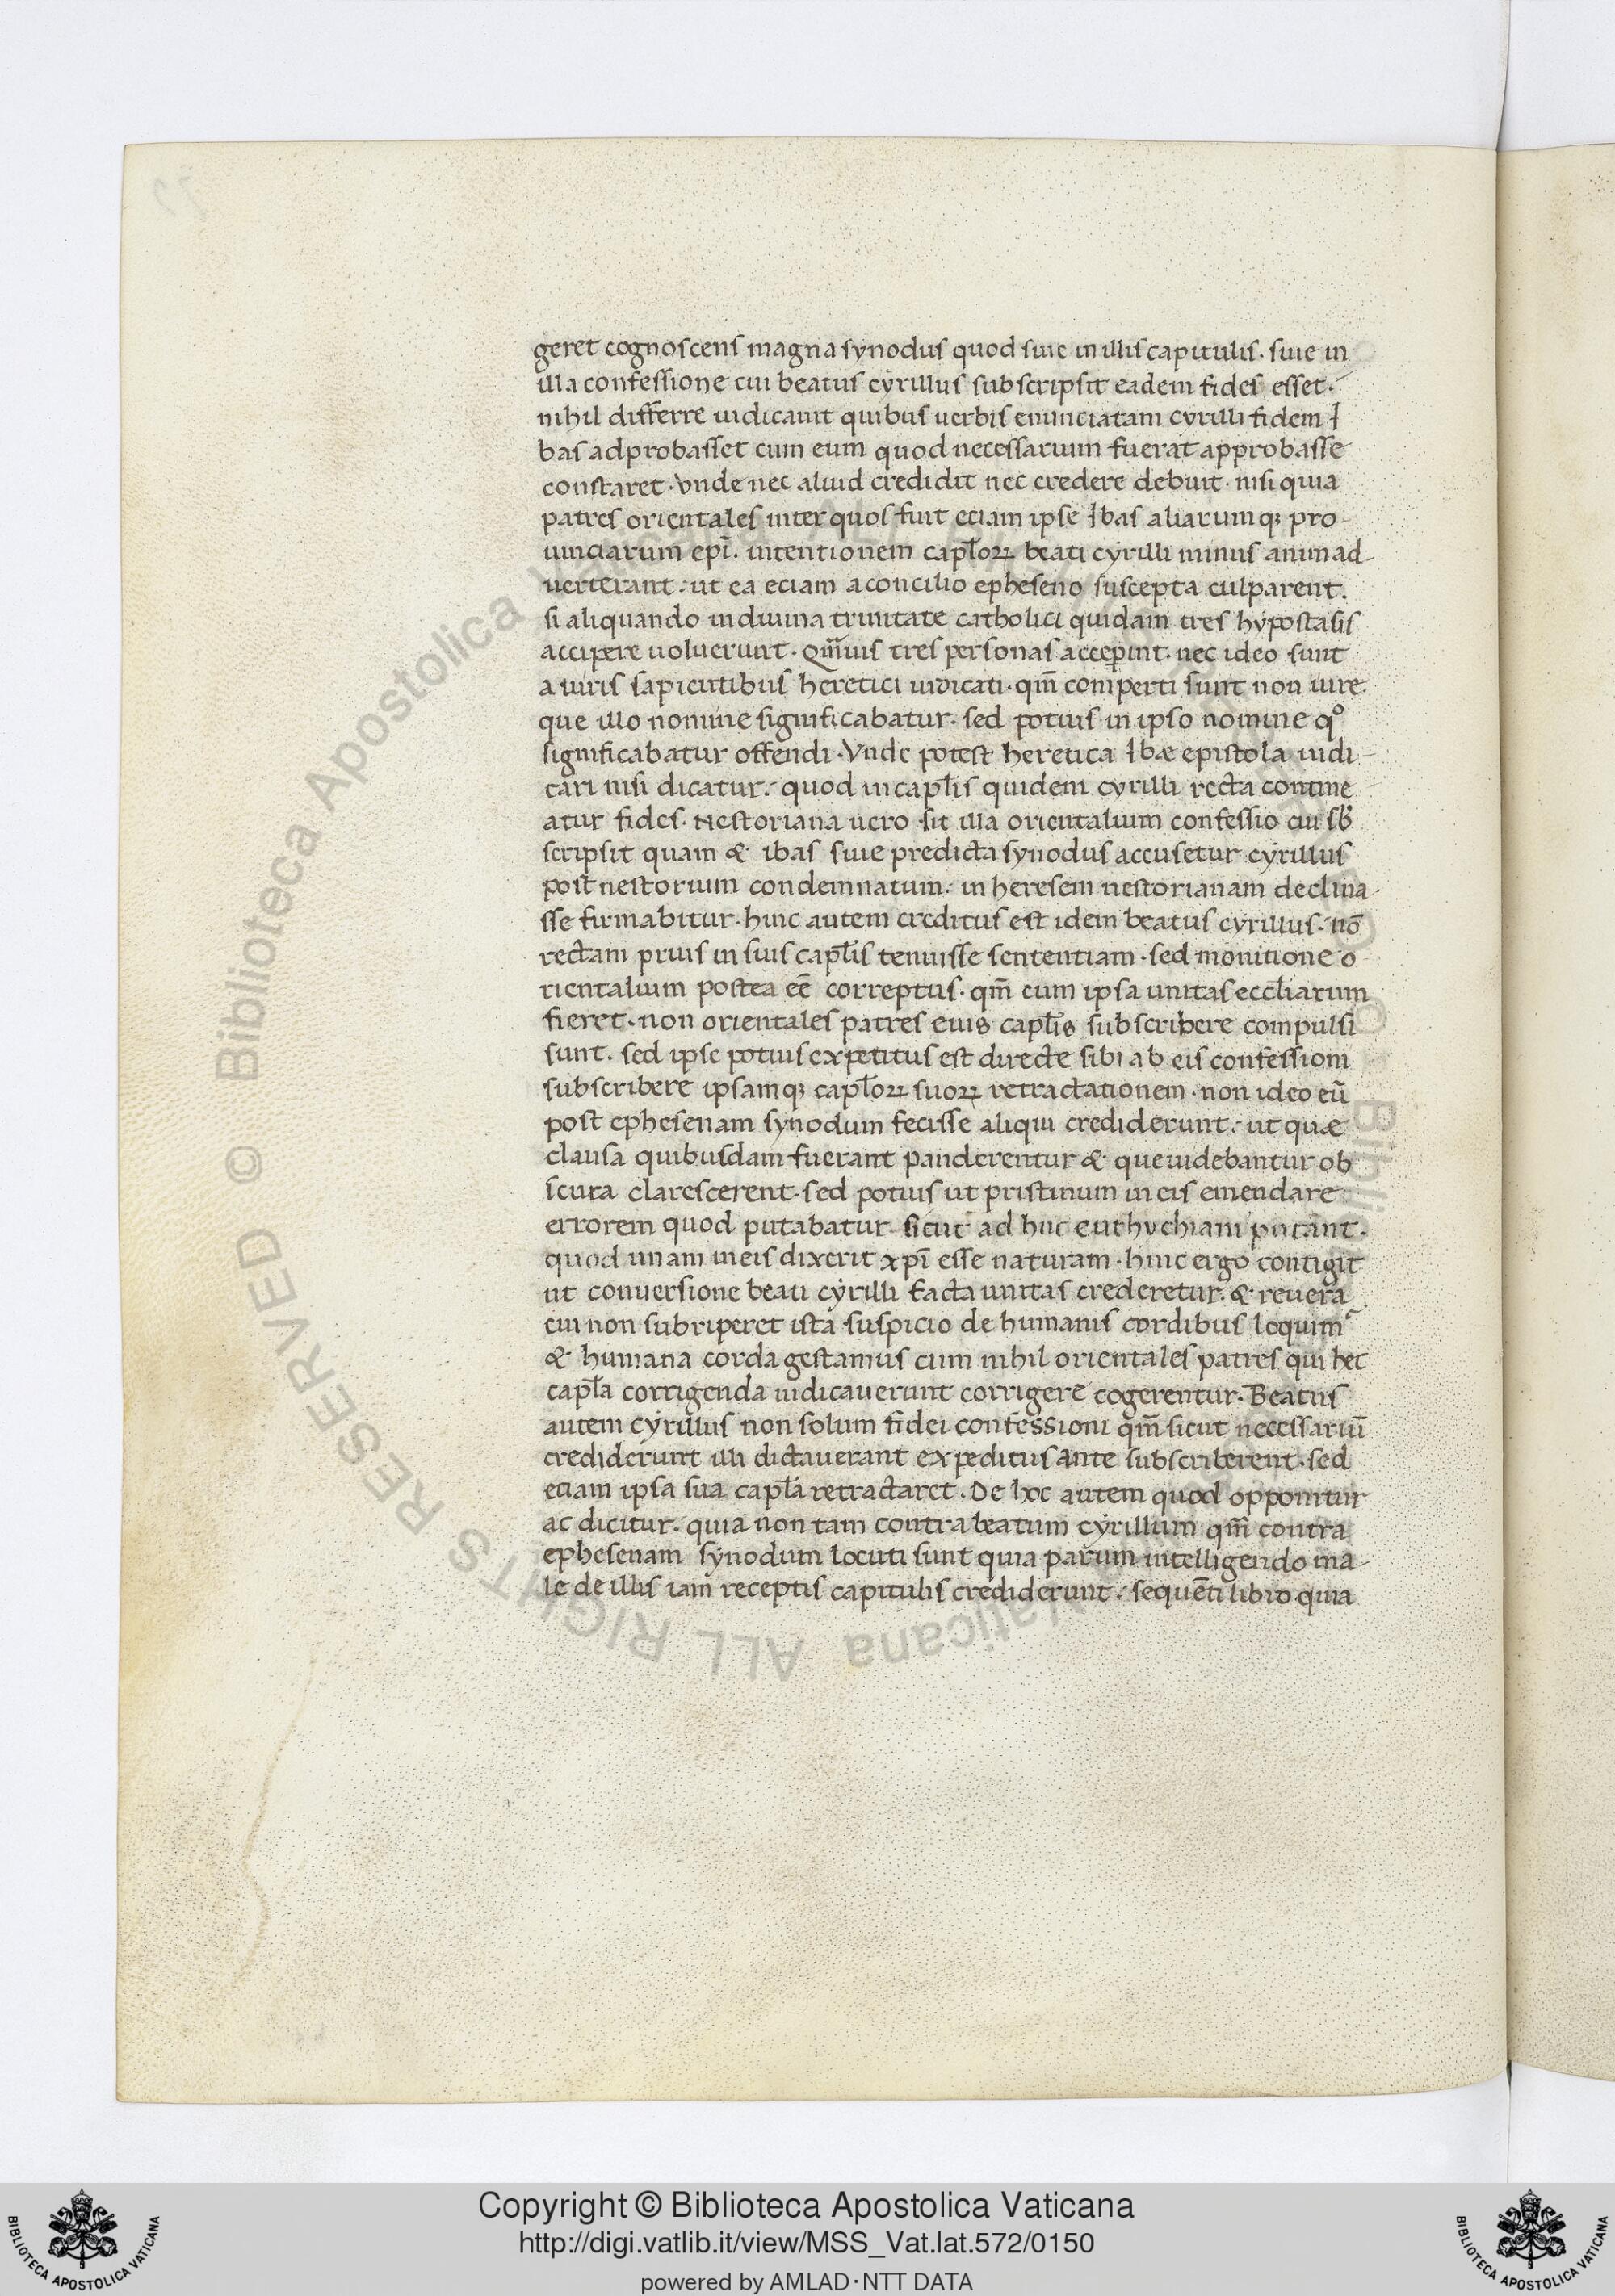 geret cognoscens magna synodus quod siue in illis capitulis. siue in
illa confessione cui beatus cyrillus subscripsit eadem fides esset.
nihil differre iudicauit quibus uerbis enunciatam cyrilli fidem I
bas adprobasset cum eum quod necessarium fuerat approbasse
constaret. Vnde nec aliud credidit nec credere debuit. nisi quia
patres orientales inter quos fuit eciam ipse Ibas aliarumqꝫ pro-
uinciarum epī. intentionem capl̄oꝝ beati cyrilli minus animad-
uerterant. ut ea eciam a concilio epheseno suscepta culparent.
si aliquando in diuina trinitate catholici quidam tres hypostasis
accipere uoluerunt. Qm̄uis tres personas acceperint. nec ideo sunt
a uiris sapientibus heretici iudicati. qm̄ comperti sunt non in re.
que illo nomine significabatur. sed potius in ipso nomine qº
significabatur offendi. Vnde potest heretica Ibæ epistola iudi-
cari nisi dicatur. quod in capl̄is quidem cyrilli recta contine
atur fides. Nestoriana uero sit illa orientalium confessio cui sb̄
scripsit quam & ibas siue predicta synodus accusetur cyrillus
post nestorium condemnatum. in heresem nestorianam declina-
sse firmabitur. hinc autem creditus est idem beatus cyrillus. nō
rectam prius in suis capl̄is tenuisse sententiam. sed monitione o
rientalium postea eē correptus. qm̄ cum ipsa unitas eccl̄iarum
fieret. non orientales patres euis capl̄is subscribere compulsi
sunt. sed ipse potius expetitus est directe sibi ab eis confessioni
subscribere ipsamqꝫ capl̄oꝝ suoꝝ retractationem. non ideo eū
post ephesenam synodum fecisse aliqui crediderunt. ut quæ
clausa quibusdam fuerant panderentur & que uidebantur ob
scura clarescerent. sed potius ut pristinum in eis emendare
errorem quod putabatur sicut ad huc euthychiani putant.
quod unam in eis dixerit xpī esse naturam. hinc ergo contigit
ut conuersione beati cyrilli facta unitas crederetur. & reuera
cui non subriperet ista suspicio de humanis cordibus loquimr
& humana corda gestamus cum nihil orientales patres qui hec
capl̄a corrigenda iudicauerunt corrigere cogerentur. Beatus
autem cyrillus non solum fidei confessioni qm̄ sicut necessariū
crediderunt illi dictauerant expeditus ante subscriberent. sed
eciam ipsa sua capl̄a retractaret. De hoc autem quod opponitur
ac dicitur. quia non tam contra beatum cyrillum qm̄ contra
ephesenam synodum locuti sunt quia parum intelligendo ma-
le de illis iam receptis capitulis crediderunt. sequēti libro quia
Copyright © Biblioteca Apostolica Vaticana
http://digi.vatlib.it/view/MSS_Vat.lat.572/0150
powered by AMLAD·NTT DATA
BIBLIOTECA APOSTOLICA VATICANA
BIBLIOTECA APOSTOLICA VATICANA
© Biblioteca Apostolica Vaticana ALL RIGHTS RESERVED